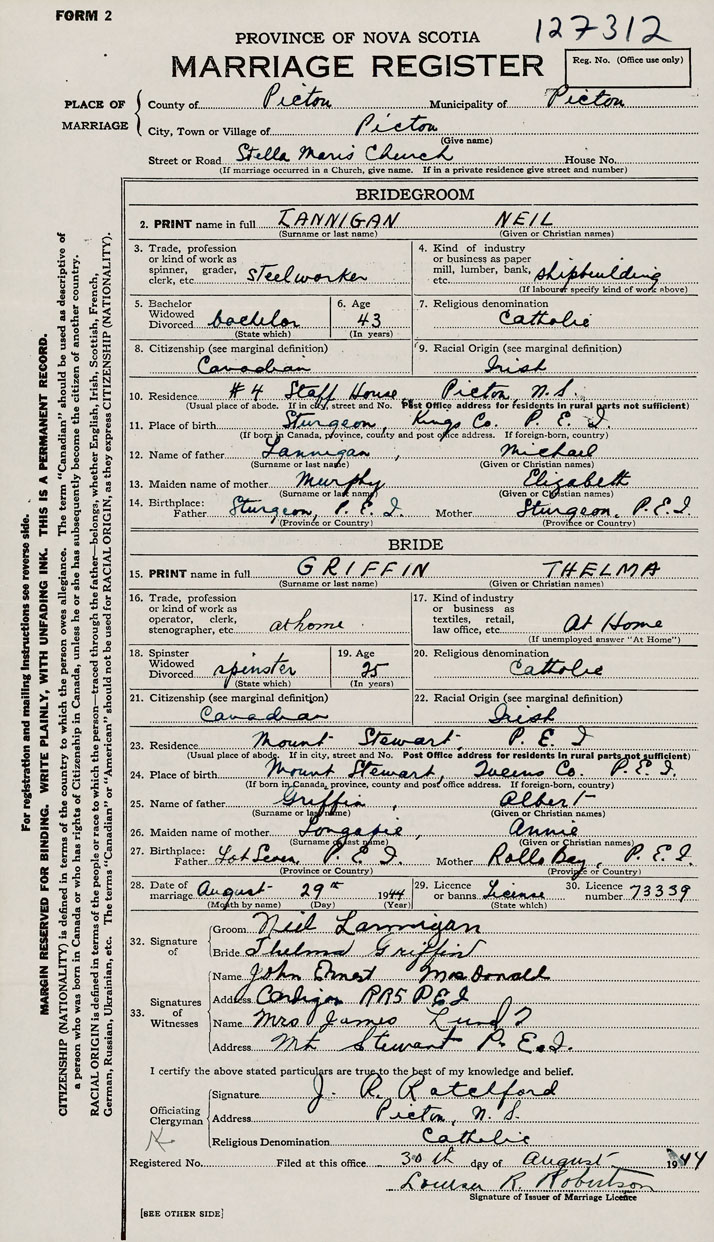 FORM 2
127312
PROVINCE OF NOVA SCOTIA
MARRIAGE REGISTER
Reg. No. (Office use only)
PLACE OF MARRIAGE
County of Picton Municipality of Picton
City, Town or Village of Picton
(Give name)
Street or Road Stella Maris Church House No.
(If marriage occurred in a Church, give name. If in a private residence give street and number)
BRIDEGROOM
2. PRINT name in full LANNIGAN NEIL
(Surname or last name) (Given or Christian names)
3. Trade, profession or kind of work as spinner, grader, clerk, etc. steelworker
4. Kind of industry or business as paper mill, lumber, bank, etc. shipbuilding
(If labourer specify kind of work above)
5. Bachelor Widowed Divorced bachelor
(State which)
6. Age 43
(In years)
7. Religious denomination
Catholic
8. Citizenship (see marginal definition)
Canadian
9. Racial Origin (see marginal definition)
Irish
10. Residence #4 Staff House, Picton, N.S.
(Usual place of abode. If in city, street and No. Post Office address for residents in rural parts not sufficient)
11. Place of birth Sturgeon, Kings Co. P.E.I.
(If born in Canada, province, county and post office address. If foreign-born, country)
12. Name of father Lannigan, Michael
(Surname or last name) (Given or Christian names)
13. Maiden name of mother Murphy Elizabeth
(Surname or last name) (Given or Christian names)
14. Birthplace: Father Sturgeon, P.E.I. Mother Sturgeon, P.E.I.
(Province or Country) (Province or Country)
BRIDE
15. PRINT name in full GRIFFIN THELMA
(Surname or last name) (Given or Christian names)
16. Trade, profession or kind of work as operator, clerk, stenographer, etc. at home
17. Kind of industry or business as textiles, retail, law office, etc. At Home
(If unemployed answer "At Home")
18. Spinster Widowed Divorced spinster
(State which)
19. Age 25
(In years)
20. Religious denomination
Catholic
21. Citizenship (see marginal definition)
Canadian
22. Racial Origin (see marginal definition)
Irish
23. Residence Mount Stewart, P.E.I
(Usual place of abode. If in city, street and No. Post Office address for residents in rural parts not sufficient)
24. Place of birth Mount Stewart, Queens Co. P.E.I.
(If born in Canada, province, county and post office address. If foreign-born, country)
25. Name of father Griffin, Albert
(Surname or last name) (Given or Christian names)
26. Maiden name of mother Longapie, Annie
(Surname or last name) (Given or Christian names)
27. Birthplace: Father Lot Seven, P.E.I. Mother Rollo Bay, P.E.I.
(Province or Country) (Province or Country)
28. Date of marriage August 29th 1944
(Month by name) (Day) (Year)
29. Licence or banns License
(State which)
30. Licence number 73339
32. Signature of
Groom Neil Lannigan
Bride Thelma Griffin
33. Signatures of Witnesses
Name John Ernest MacDonald
Address Cardigan RR5 PEI
Name Mrs James
Address Mt Stewart P.E.I.
I certify the above stated particulars are true to the best of my knowledge and belief.
Officiating Clergyman
Signature J. R. Ratchford
Address Picton, N.S.
Religious Denomination Catholic
Registered No. Filed at this office 30th day of August 1944
Louisa R. Robertson
Signature of Issuer of Marriage Licence
[SEE OTHER SIDE]
For registration and mailing instructions see reverse side.
MARGIN RESERVED FOR BINDING. WRITE PLAINLY, WITH UNFADING INK. THIS IS A PERMANENT RECORD.
CITIZENSHIP (NATIONALITY) is defined in terms of the country to which the person owes allegiance. The term "Canadian" should be used as descriptive of
a person who was born in Canada or who has rights of Citizenship in Canada, unless he or she has subsequently become the citizen of another country.
RACIAL ORIGIN is defined in terms of the people or race to which the person—traced through the father—belongs, whether English, Irish, Scottish, French,
German, Russian, Ukrainian, etc. The terms "Canadian" or "American" should not be used for RACIAL ORIGIN, as they express CITIZENSHIP (NATIONALITY).